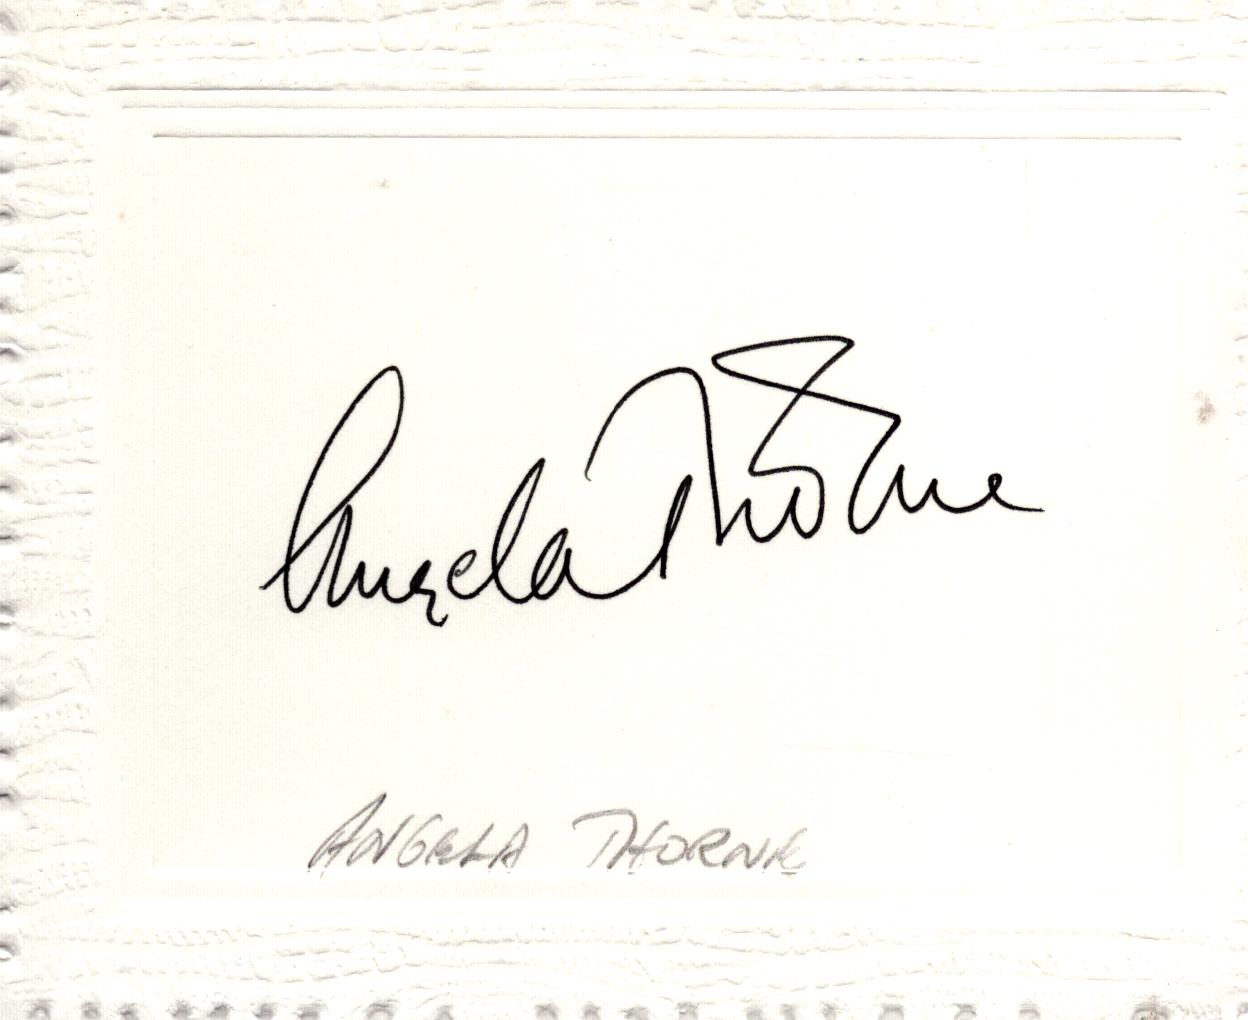 Angela Thorne
ANGELA THORNE